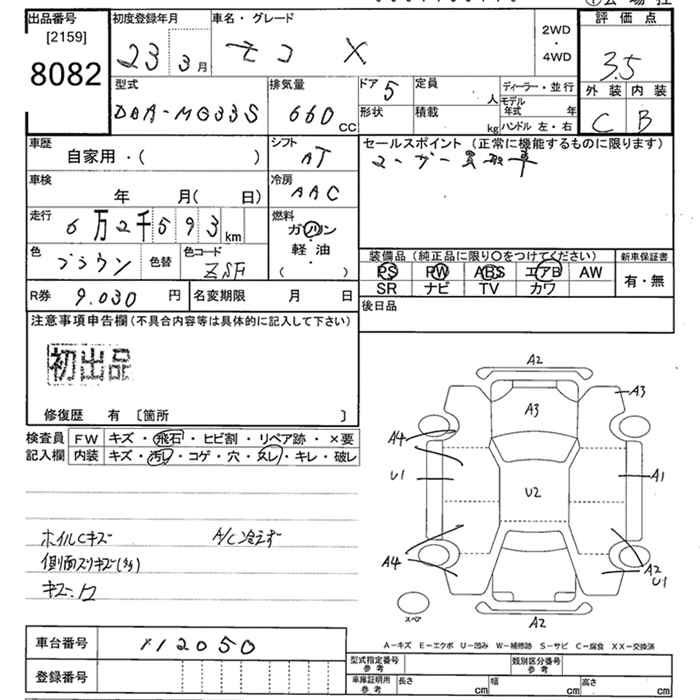 出品番号
[2159]
8082
初度登録年月
23 3月
車名・グレード
モコ X
2WD
・
4WD
評価点
3.5
外装 内装
C B
型式
DBA-MG33S
排気量
660 CC
ドア 5
形状
定員 人
積載 kg
ディーラー・並行
モデル年式 年
ハンドル 左・右
車歴
自家用・( )
シフト
AT
セールスポイント(正常に機能するものに限ります)
ユーザー買取車
車検
年 月( 日)
冷房
AAC
走行
6万2千593km
燃料
ガソリン
・
軽油
( )
色
ブラウン
色替
色コード
ZSF
装備品(純正品に限り○をつけてください)
PS PW ABS エアB AW
SR ナビ TV カワ
新車保証書
有・無
R券 9.030 円
名変期限 月 日
後日品
注意事項申告欄(不具合内容等は具体的に記入して下さい)
初出品
修復歴 有 〔箇所 〕
検査員 FW キズ・飛石・ヒビ割・リペア跡・×要
記入欄 内装 キズ・汚レ・コゲ・穴・スレ・キレ・破レ
ホイルCキズ A/C冷えず
側面スリキズ(小)
A2
A3
A3
A4
U1
U2
A1
A4
A2
U1
A2
スペア
A-キズ E-エクボ U-凹み W-補修跡 S-サビ C-腐食 XX-交換済
車台番号
登録番号
型式指定番号
参考
類別区分番号
参考
車庫証明用
参考
長さ cm 幅 cm 高さ cm